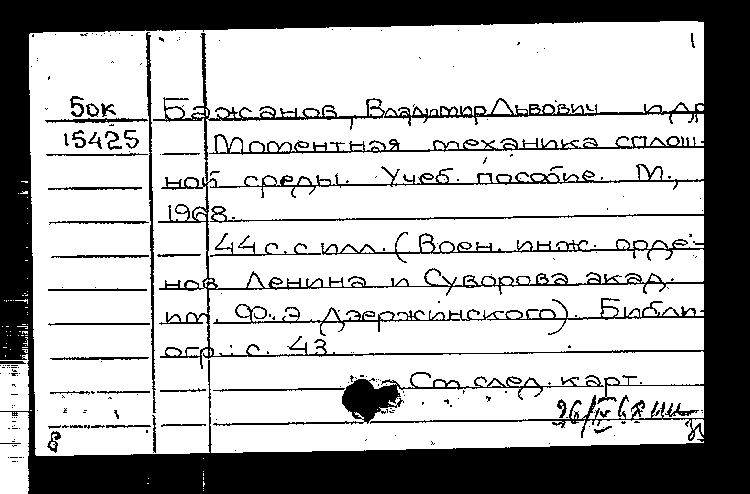 1
Бок Бажанов, Владимир Львович и др
15425 Моментная механика сплош-
ной среды. Учеб. пособие. М.,
1968.
44 с. с илл. (Воен. инж. орде-
нов Ленина и Суворова акад.
им. Ф.Э. Дзержинского). Библи-
огр.: с. 43.
См след. карт.
26/IV 68
в